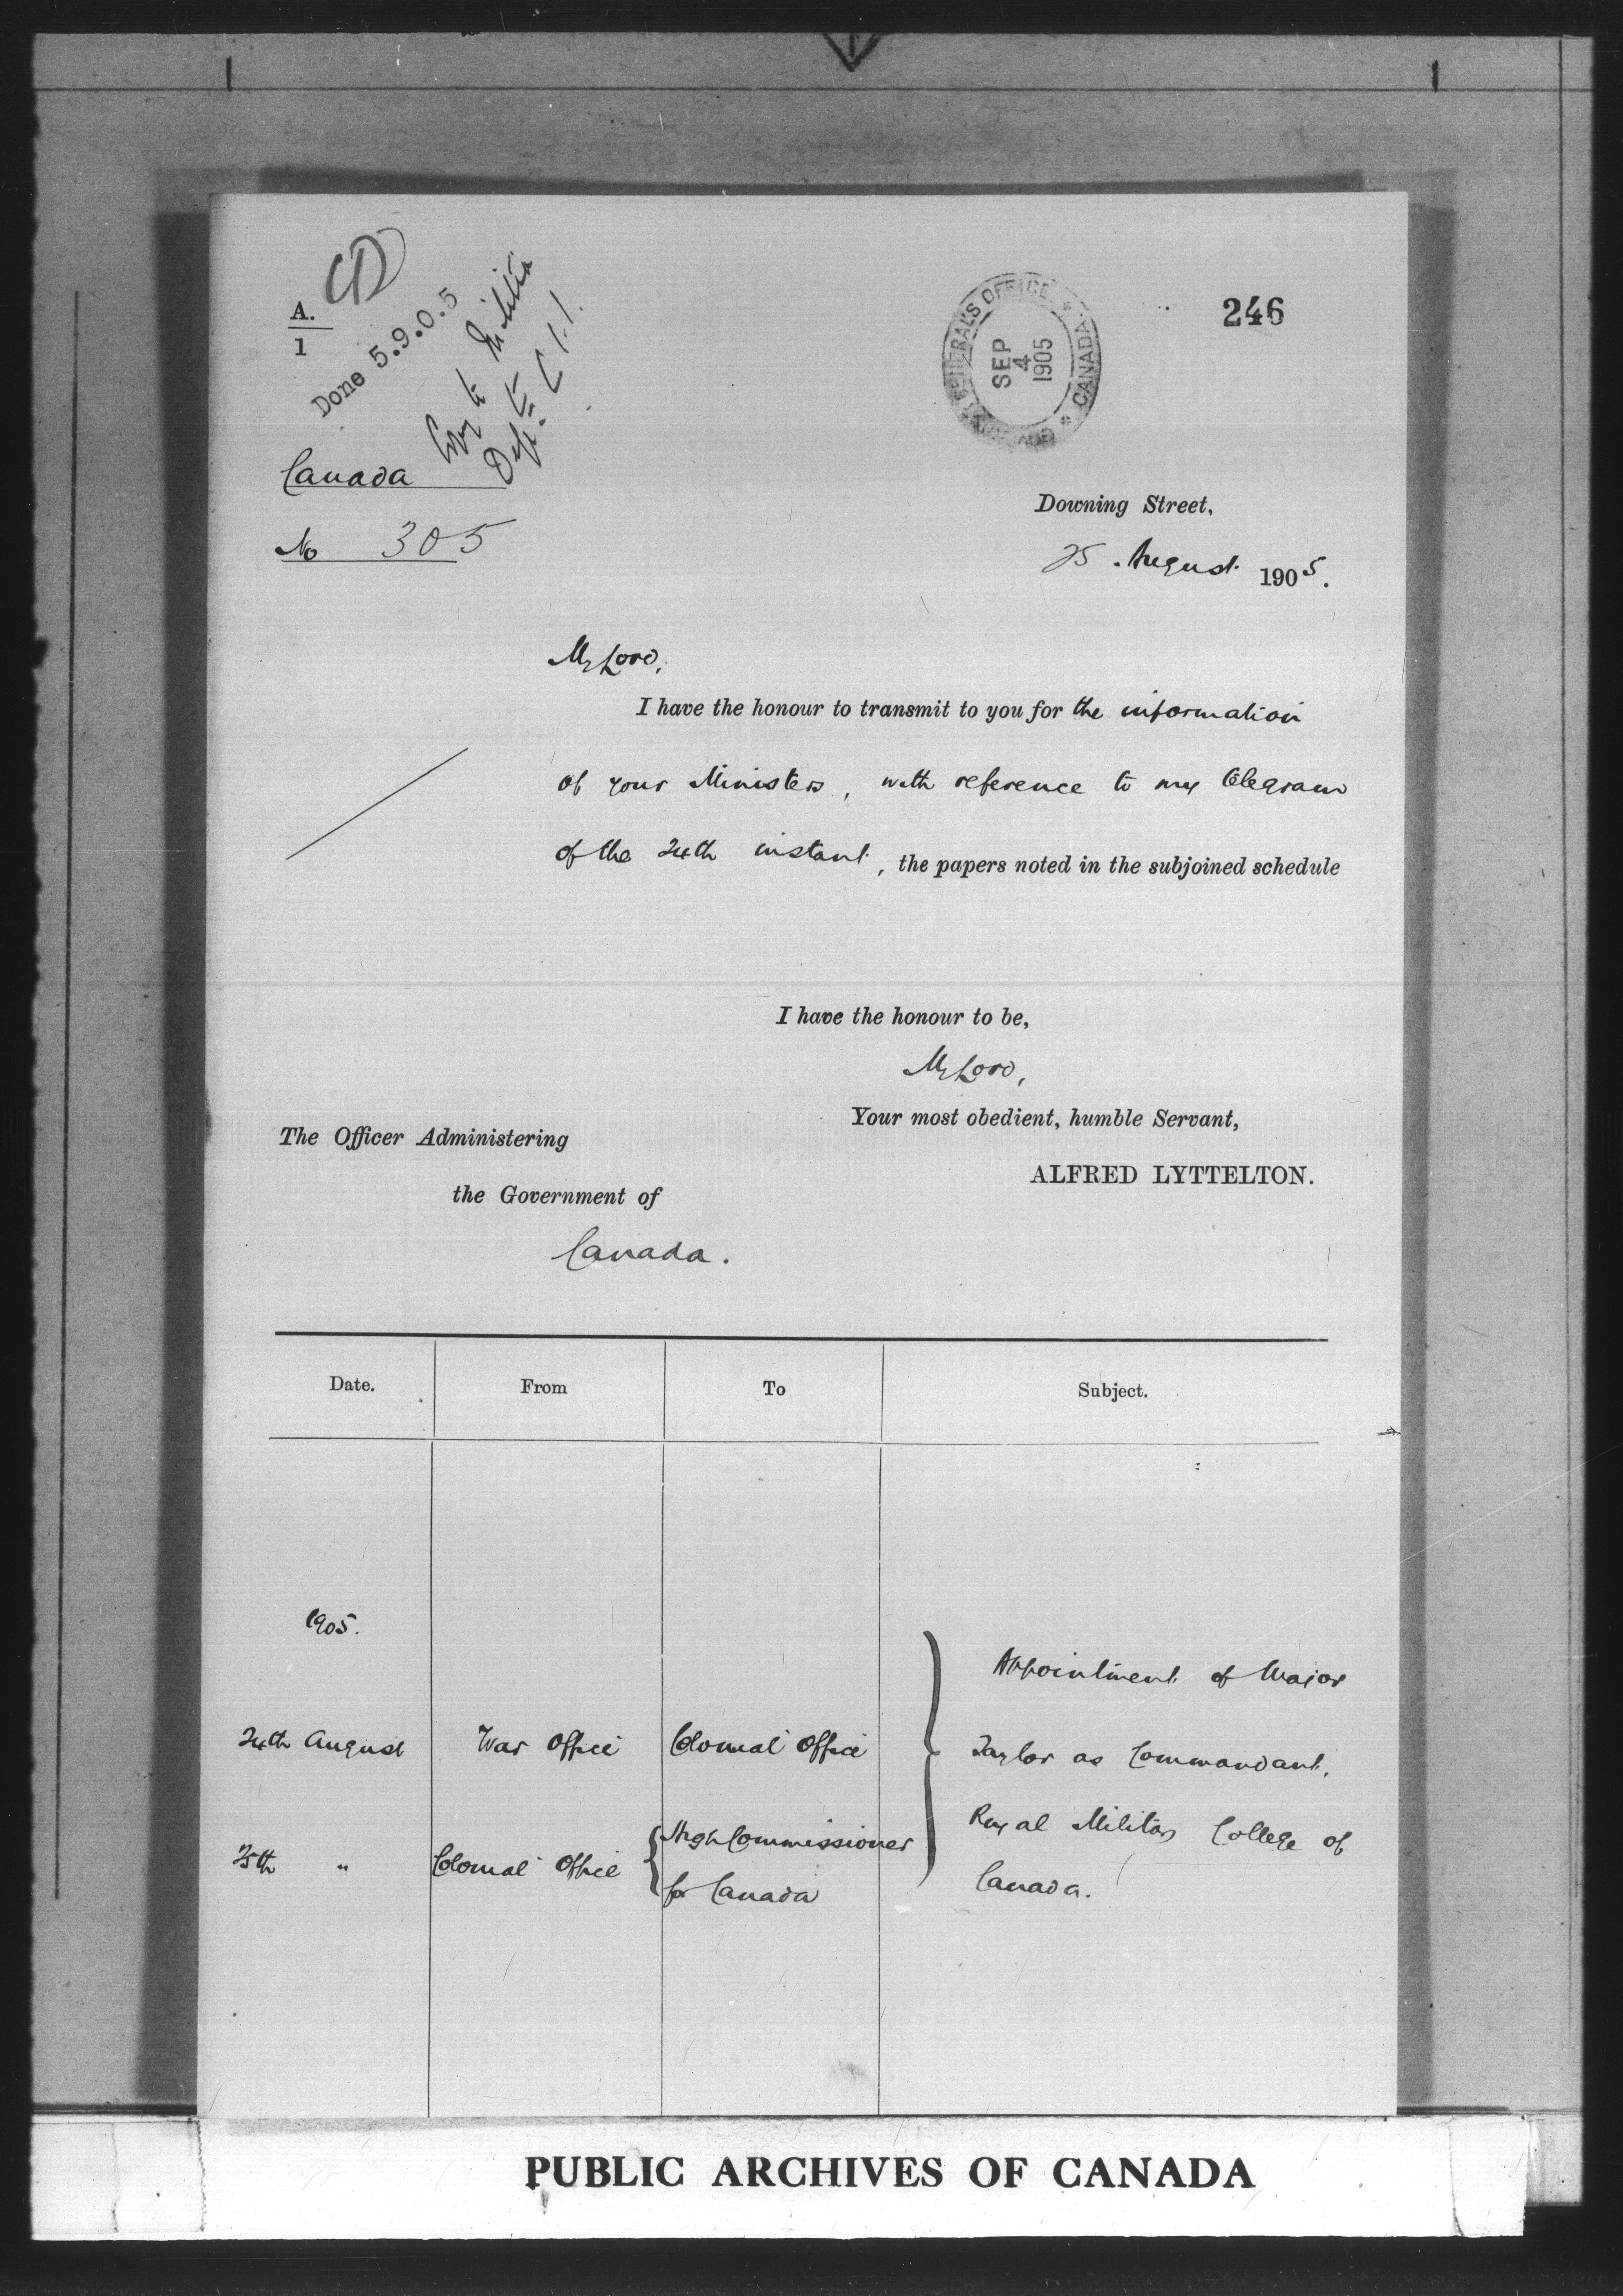 A.
1
Done 5.9.0.5
Copy to Militia
Dept.
GOVERNOR GENERAL'S OFFICE * CANADA *
SEP
4
1905
246
Canada
No 305
Downing Street,
25 . August 1905.
My Lord,
I have the honour to transmit to you for the information
of your Ministers, with reference to my telegram
of the 24th instant, the papers noted in the subjoined schedule
I have the honour to be,
My Lord,
Your most obedient, humble Servant,
ALFRED LYTTELTON.
The Officer Administering
the Government of
Canada.
Date. From To Subject.
1905.
Appointment of Major
24th August War Office Colonial Office Taylor as Commandant,
Royal Military College of
25th " Colonial Office High Commissioner
for Canada Canada.
PUBLIC ARCHIVES OF CANADA